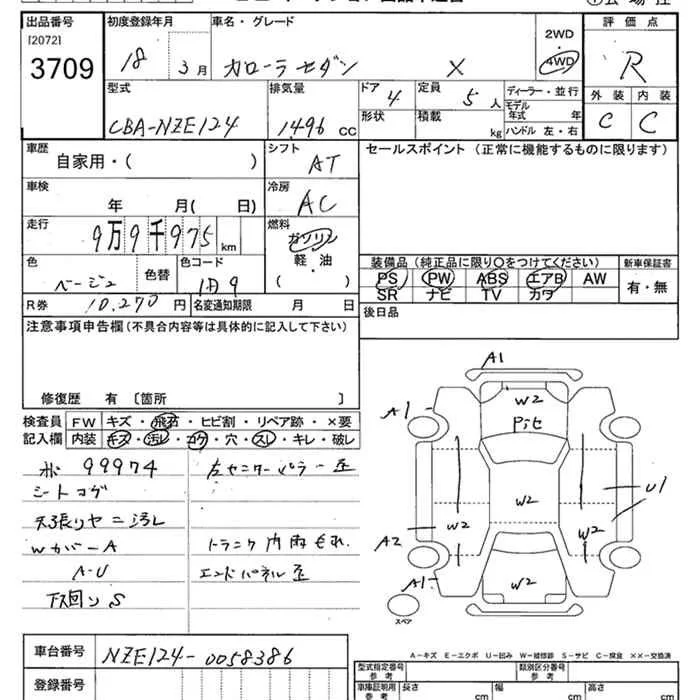 出品番号 初度登録年月 車名・グレード 評価点
[2072]
3709 18 3月 カローラセダン X 2WD 4WD R
型式 排気量 ドア 4 定員 5人 ディーラー・並行 外装 内装
CBA-NZE124 1496 cc 形状 積載 kg モデル年式 年 C C
ハンドル 左・右
車歴 シフト セールスポイント (正常に機能するものに限ります)
自家用・( ) AT
車検 冷房
年 月( 日) AC
走行 燃料
9万9千975 km ガソリン
軽・油
( )
色 色替 色コード 装備品 (純正品に限り○をつけてください) 新車保証書
ベージュ PS PW ABS エアB AW 有・無
SR ナビ TV カワ
R券 10,270 円 名変通知期限 月 日
後日品
注意事項申告欄 (不具合内容等は具体的に記入して下さい)
修復歴 有 〔箇所 〕
検査員 FW キズ・飛石・ヒビ割・リペア跡・×要
記入欄 内装 キズ・汚レ・コゲ・穴・スレ・キレ・破レ
99974 左センターピラー歪
シートコゲ
天張りヤニ汚レ
WカバーA トランク内雨もれ
A-U エンドパネル歪
下回りS
A1
W2
Pitヒ
A1
W2
U1
W2 W2
A2
A1 W2
スペア
A-キズ E-エクボ U-凹み W-補修跡 S-サビ C-腐食 XX-交換済
車台番号 NZE124-0058386
型式指定番号 参考 類別区分番号 参考
登録番号 車庫証明用 参考 長さ cm 幅 cm 高さ cm